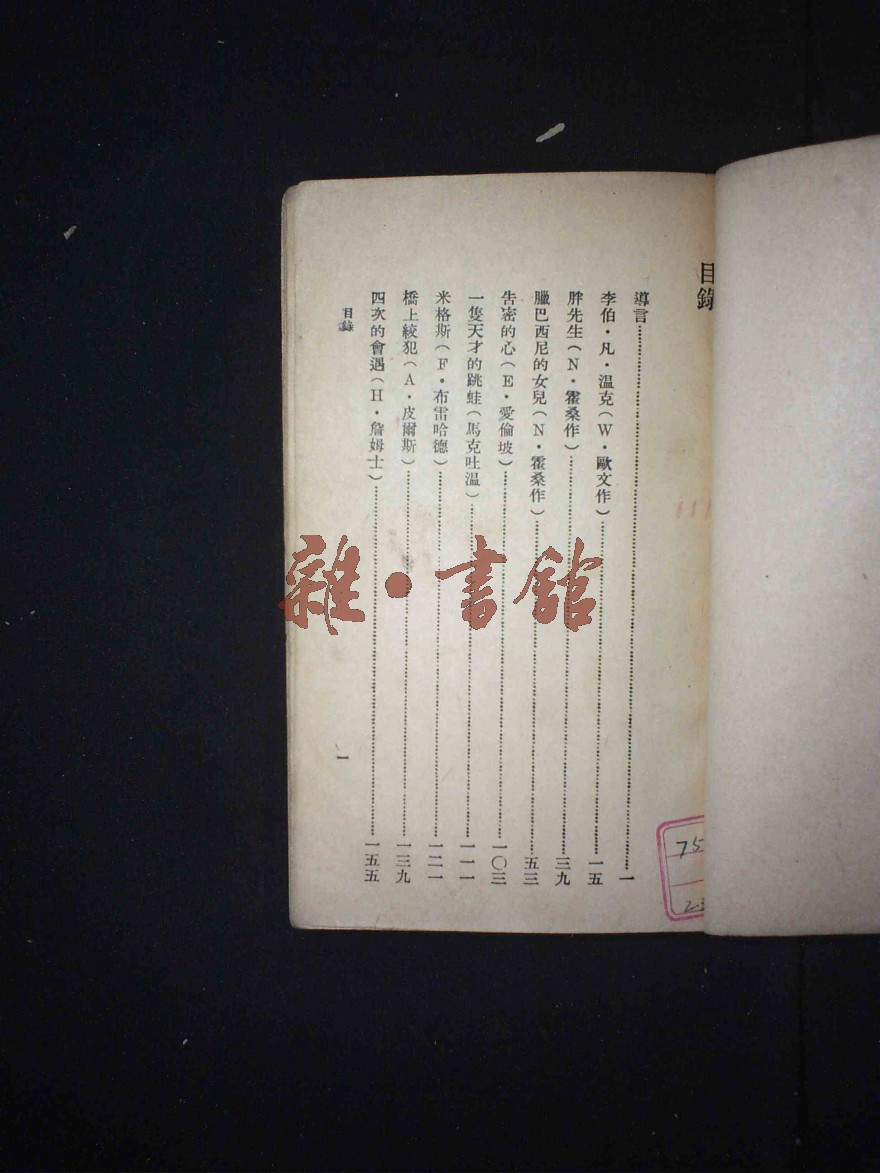 目錄
導言……一
李伯·凡·温克(W·歐文作)……一五
胖先生(N·霍桑作)……三九
臘巴西尼的女兒(N·霍桑作)……五三
告密的心(E·愛倫坡)……一〇三
一隻天才的跳蛙(馬克吐溫)……一一一
米格斯(F·布雷哈德)……一二一
橋上絞犯(A·皮爾斯)……一三九
四次的會遇(H·詹姆士)……一五五
目錄
一
雜·書館
75